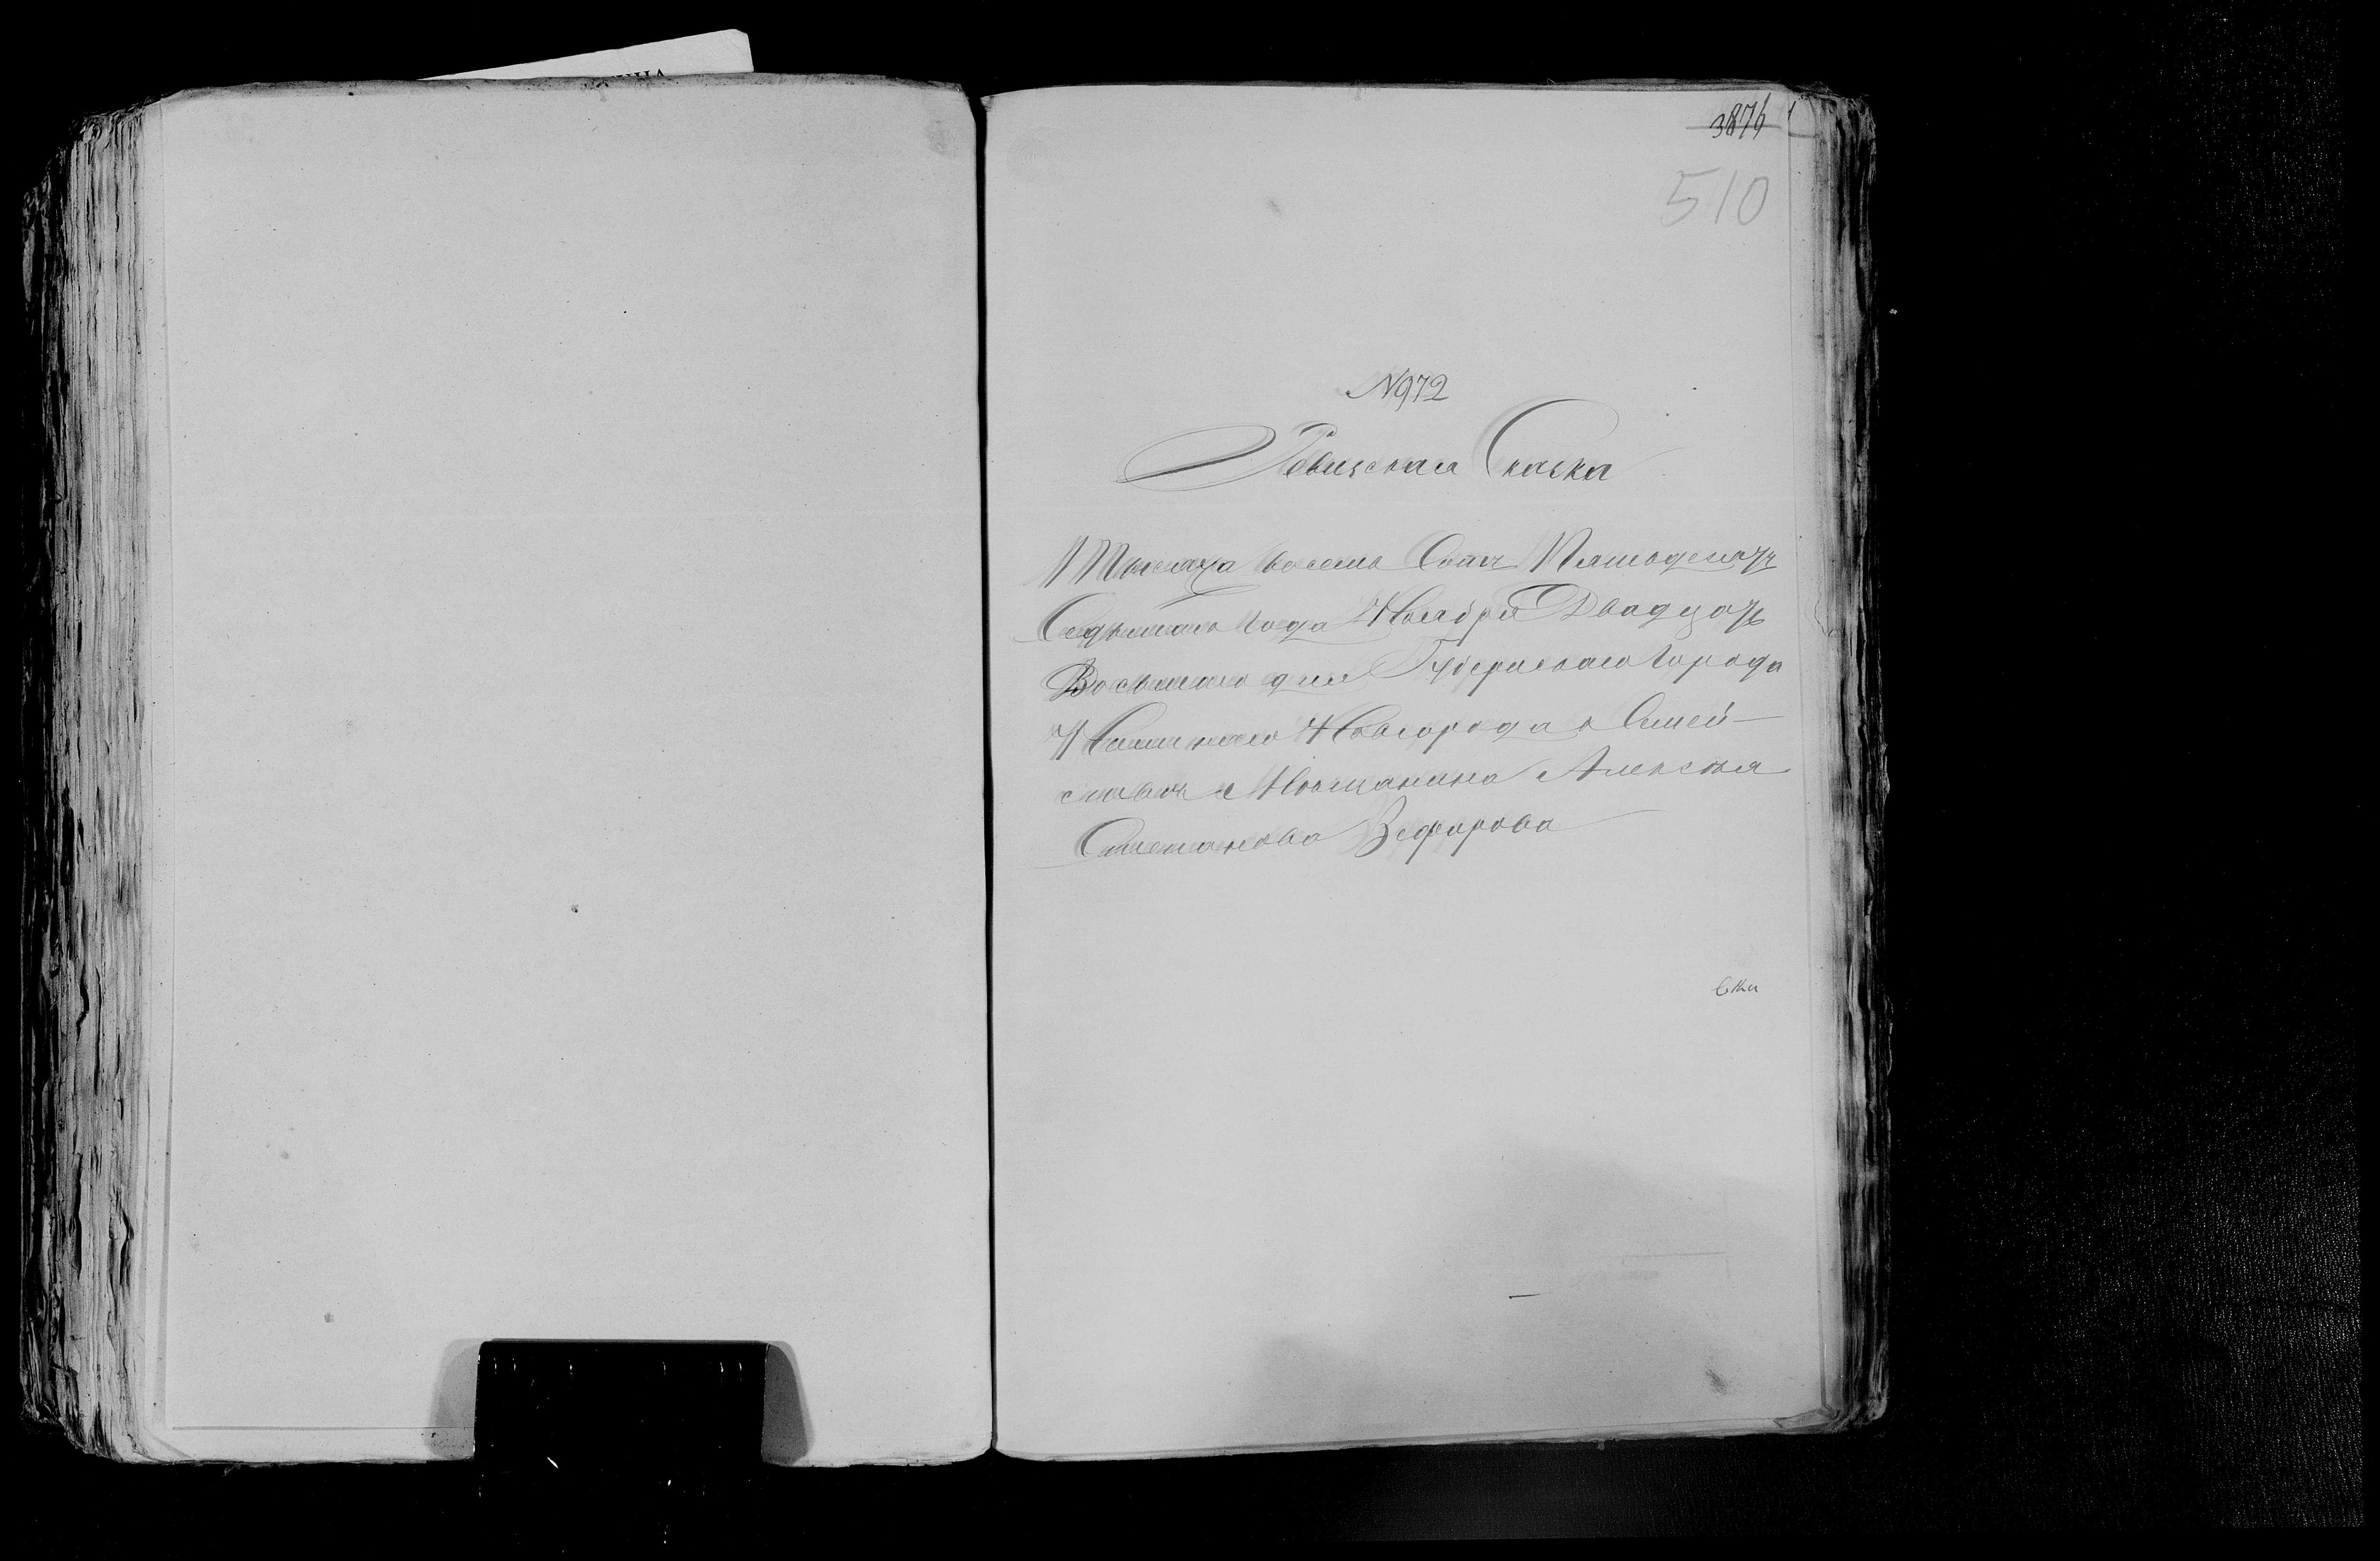 3876
510
N972
Ревизская Сказка
Тысяча восемь Сотъ Пятьдесятъ
Седьмаго года Ноября Двадцать
Восьмаго дня Губернскаго Города
Нижняго Новгорода о Семей-
ствѣ Мѣщанина Алексѣя
Степанова Зефирова